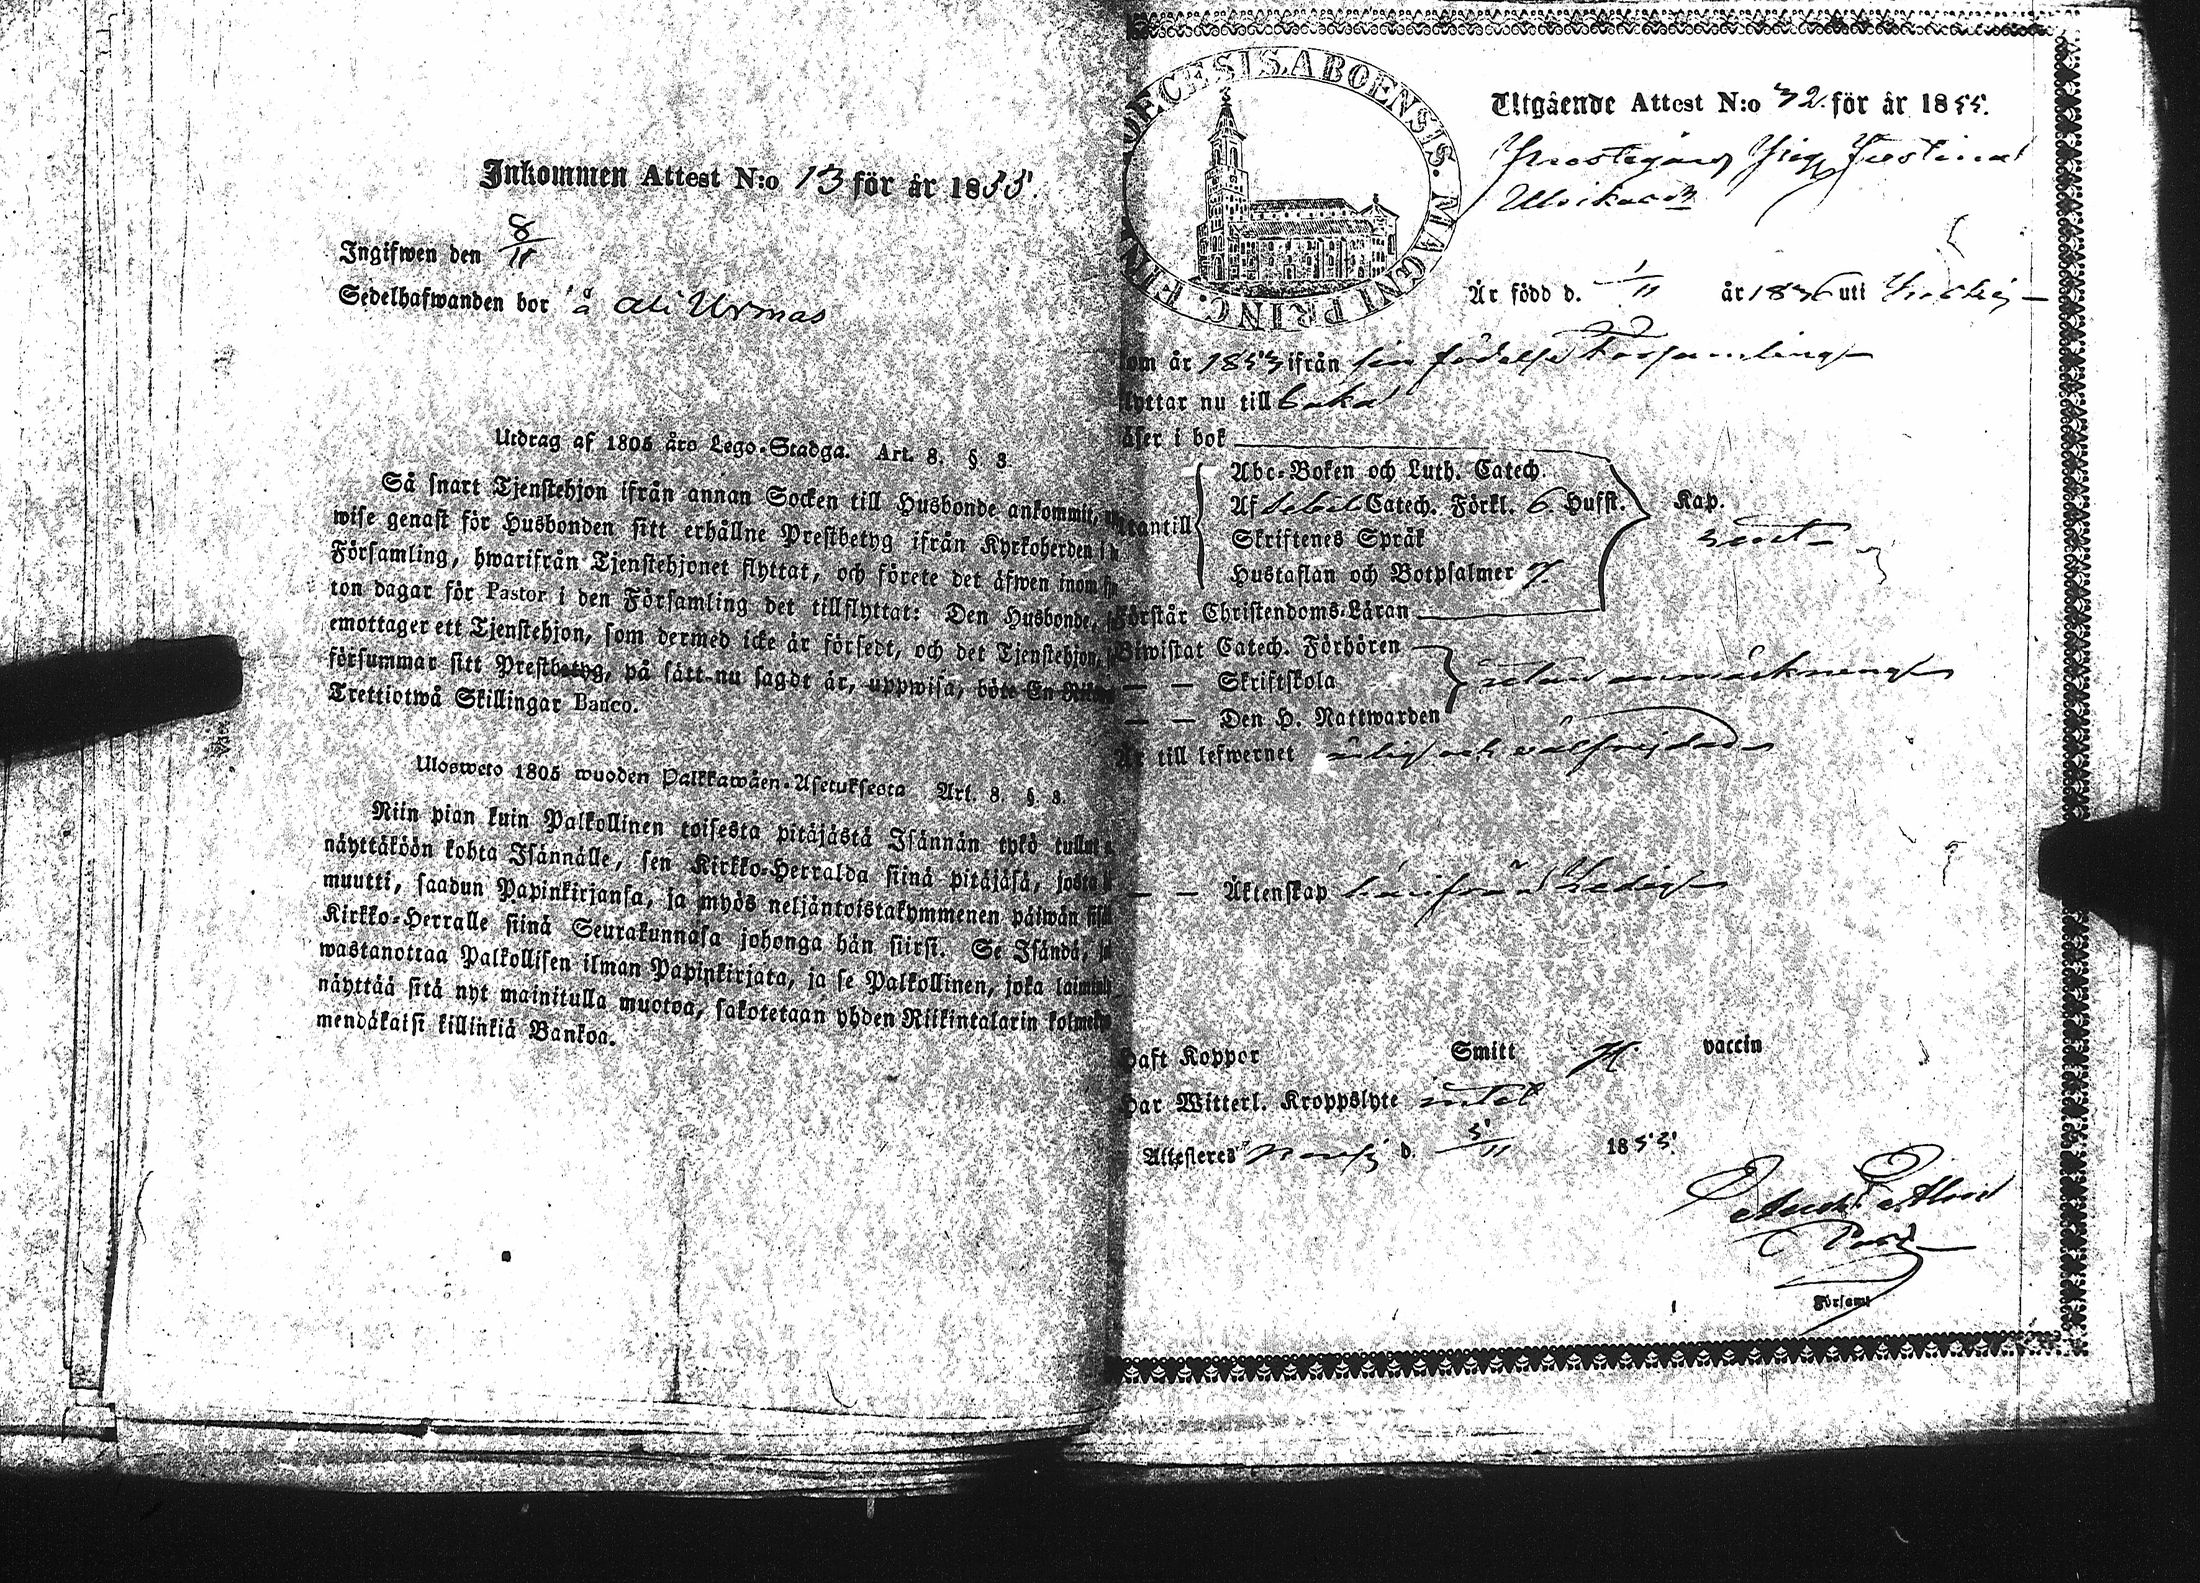 Inkommen Attest N:o 13 för år 1855.
Ingifwen den 8/11
Sedelhafwanden bor å Ali Urmas
Utdrag af 1805 års Lego-Stadga. Art. 8. § 3.
Så snart Tjenstehjon ifrån annan Socken till Husbonde ankommit,
wise genast för Husbonden sitt erhållne Prestbetyg ifrån Kyrkoherden i
Församling, hwarifrån Tjenstehjonet flyttat, och förete det äfwen inom
ton dagar för Pastor i den Församling det tillflyttat: Den Husbonde,
emottager ett Tjenstehjon, som dermed icke är försedt, och det Tjenstehjon,
försummar sitt Prestbetyg, på sätt nu sagdt är, uppwisa, böte En
Trettiotwå Skillingar Banco.
Ulosweto 1805 wuoden Palkkawäen-Asetuksesta Art. 8. §. 3.
Niin pian kuin Palkollinen toisesta pitäjästä Isännän tykö tullut
näyttäköön kohta Isännälle, sen Kirkko-Herralda siinä pitäjäsä, josta
muutti, saadun Papinkirjansa, ja myös neljäntoistakymmenen päiwän
Kirkko-Herralle siinä Seurakunnasa johonga hän siirsi. Se Isändä,
wastanottaa Palkollisen ilman Papinkirjata, ja se Palkollinen, joka
näyttää sitä nyt mainitulla muotoa, sakotetaan yhden Riikintalarin
mendäkaisi killinkiä Bankoa.
DECESIS ABOENSIS. MAGNI PRINC. FIN
Utgående Attest N:o 32. för år 1855.
Pig Justina
Ulrika
Är född d. 1/11 år 1836 uti
om år 1853 ifrån sin födelse Församling
flyttar nu till baka
äser i bok
Abc-Boken och Luth. Catech.
utantill Af Catech. Förkl. 6 Hufst. Kap.
Skriftenes Språk
Hustaflan och Botpsalmer 7.
Förstår Christendoms-Läran
Biwistat Catech. Förhören
— — Skriftskola utan anmärkning
— — Den H. Nattwarden
Är till lefwernet ärlig och välfrejdad
— — Äktenskap härifrån Ledig
Haft Koppor Smitt vaccin
Har Witterl. Kroppslyte intet
Attesteras d. 5/11 1855.
Församl